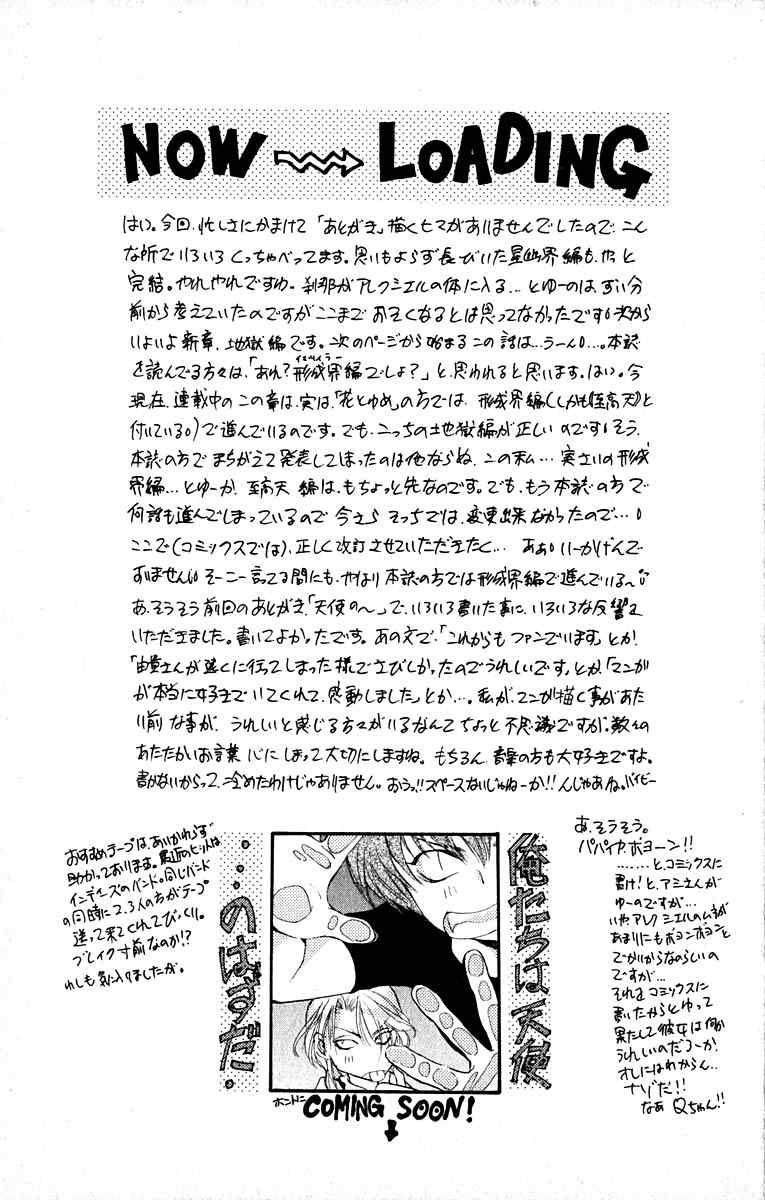 NOW → LOADING
はい。今回、忙しさにかまけて「あとがき」描くヒマがありませんでしたので、こん
な所でいろいろくっちゃべってます。思いもよらず長びいた星幽界編も、やっと
完結。やれやれですわ。刹那がアレクシエルの体に入る…とゆーのは、ずい分
前から考えていたのですがここまでおそくなるとは思ってなかったです。次から
いよいよ新章、地獄編です。次のページから始まるこの話は…うーん…。本誌
を読んでる方々は、「あれ?形成界編でしょ?」と、思われると思います。はい。今
現在、連載中のこの章は、実は、「花とゆめ」の方では、形成界編(しかも至高天と
付いている)で進んでいるのです。でも、こっちの地獄編が正しいのです。そう、
本誌の方でまちがえて発表してしまったのは他ならぬ、この私…実さいの形成
界編…とゆーか、至高天編は、もちょっと先なのです。でも、もう本誌の方で
何話も進んでしまっているので今さらそっちでは、変更出来なかったので…
ここで(コミックスでは)、正しく改訂させていただきたく…ああっいーかげんで
すいませんそーこー言ってる間にも、やはり本誌の方では形成界編で進んでいる〜
あ、そうそう前回のあとがき、「天使の〜」で、いろいろ書いた事に、いろいろな反響を
いただきました。書いてよかったです。あの文で、「これからもファンでいます」とか、
「由貴さんが遠くに行ってしまった様でさびしかったのでうれしいです」とか、「マンガ
が本当に好きでいてくれて、感動しました」とか…。私が、マンガ描く事があた
り前な事が、うれしいと感じる方々がいるなんてちょっと不思議ですが、数々の
あたたかいお言葉、心にしまって大切にしますね。もちろん、音楽の方も大好きですよ。
書かないからって、冷めたわけじゃありません。おうっ!!スペースないじゃねーか!!んじゃあね。バイビー
おすすめテープは、あいかわらず
助かっております。最近のヒットは
インディーズのバンド。同じバンド
の同時に2、3人の方がテープ
送って来てくれてびっくり。
ブレイク寸前なのか!?
わしも気に入りましたが。
俺たちは天使
…のはずだ…
あ、そうそう。
パパイヤ・ボヨーン!!
……と、コミックスに
書け!と、アミさんが
ゆーのですが…
いやアレクシエルのムネが
あまりにもボヨンボヨンと
でかいからなのらしいの
ですが…
それをコミックスに
書いたからとゆって
果たして彼女は何が
うれしいのだろーか!
オレにはわからん…
ナゾだ!!
なあQちゃん!!
ホントに
COMING SOON!